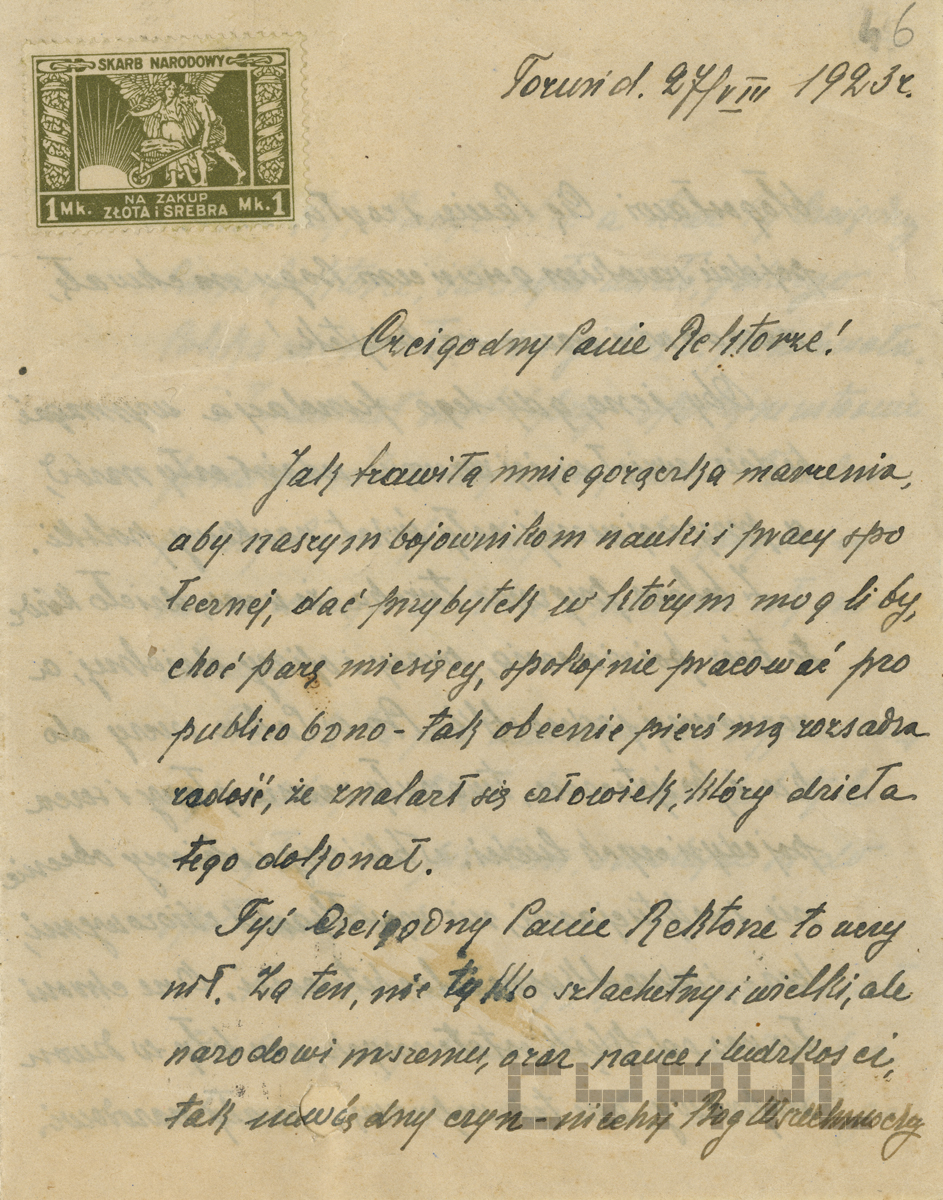 46
SKARB NARODOWY
1 Mk. NA ZAKUP Mk. 1
ZŁOTA i SREBRA
Toruń d. 27/VIII 1923 r.
Czcigodny Panie Rektorze!
Jak trawiła mnie gorączka marzenia,
aby naszym bojownikom nauki i pracy spo
łecznej, dać przybytek w którym mogli by,
choć parę miesięcy, spokojnie pracować pro
publico bono - tak obecnie pierś mą rozsadza
radość, że znalazł się człowiek, który dzieła
tego dokonał.
Tyś Czcigodny Panie Rektorze to uczy
nił. Za ten, nie tylko szlachetny i wielki, ale
narodowi naszemu, oraz nauce i ludzkości,
tak czyn - niechaj Bóg Wszechmocny